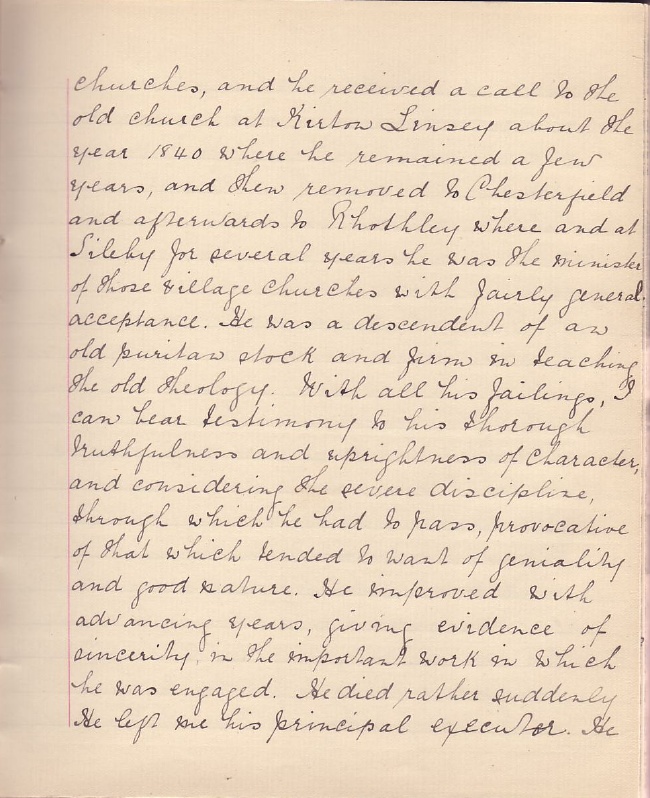 churches, and he received a call to the
old church at Kirton Linsey about the
year 1840 where he remained a few
years, and then removed to Chesterfield
and afterwards to Rhothley where and at
Sileby for several years he was the minister
of those village churches with fairly general
acceptance. He was a descendent of an
old puritan stock and firm in teaching
the old theology. With all his failings, I
can bear testimony to his thorough
truthfulness and uprightness of character,
and considering the severe discipline,
through which he had to pass, provocative
of that which tended to want of geniality
and good nature. He improved with
advancing years, giving evidence of
sincerity, in the important work in which
he was engaged. He died rather suddenly
He left me his principal executor. He